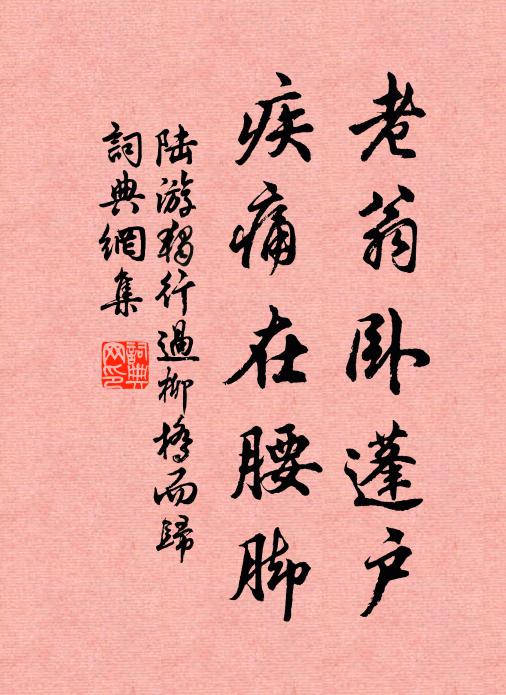 老翁卧蓬户
疾痛在腰脚
陆游獨行過柳橋而歸
詞典網集
詞典网印